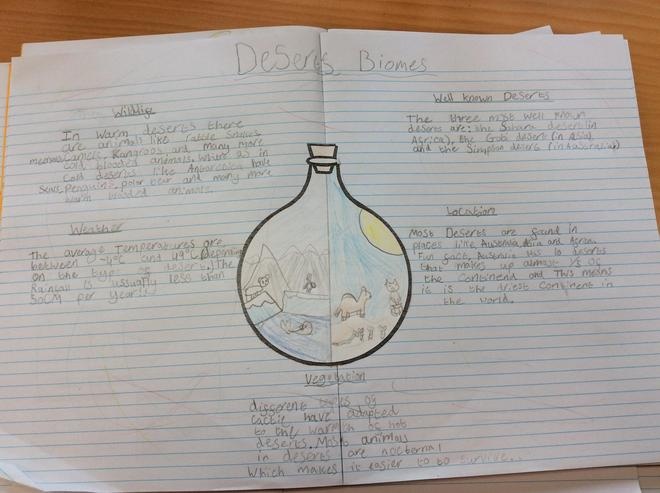 Deserts Biomes
Wildlife
In warm deserts there
are animals like rattle snakes
meercats, Camels, Kangroos, and many more
cold blooded animals. Where as in
Cold deserts like Antarctica have
Seals, Penguins, polar bear and many more
warm blooded animals.
Weather
The average Temperatures are
between -4°C and 49°C (depending
on the type of desert). The
Rainfall is usually less than
50CM per year!!
Well known Deserts
The three most well known
deserts are: the Sahara desert (in
Africa), the Gobi desert (in Asia)
and the Simpson desert (in Australia)
Location
Most Deserts are found in
places like Australia, Asia and Africa.
Fun fact, Australia has 10 deserts
that makes up almost 1/5 of
the Continent and This means
it is the driest Continent in
the world.
Vegetation
different types of
Cactie have adapted
to the warmth of hot
deserts. Most animals
in deserts are nocternal
Which makes is easier to to survive.